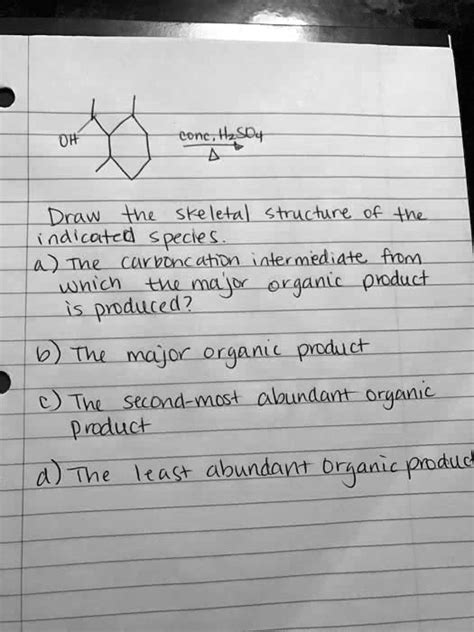 OH
conc, H₂SO₄
Δ
Draw the skeletal structure of the
indicated species.
a) The carboncation intermediate from
which the major organic product
is produced?
b) The major organic product
c) The second-most abundant organic
product
d) The least abundant organic product